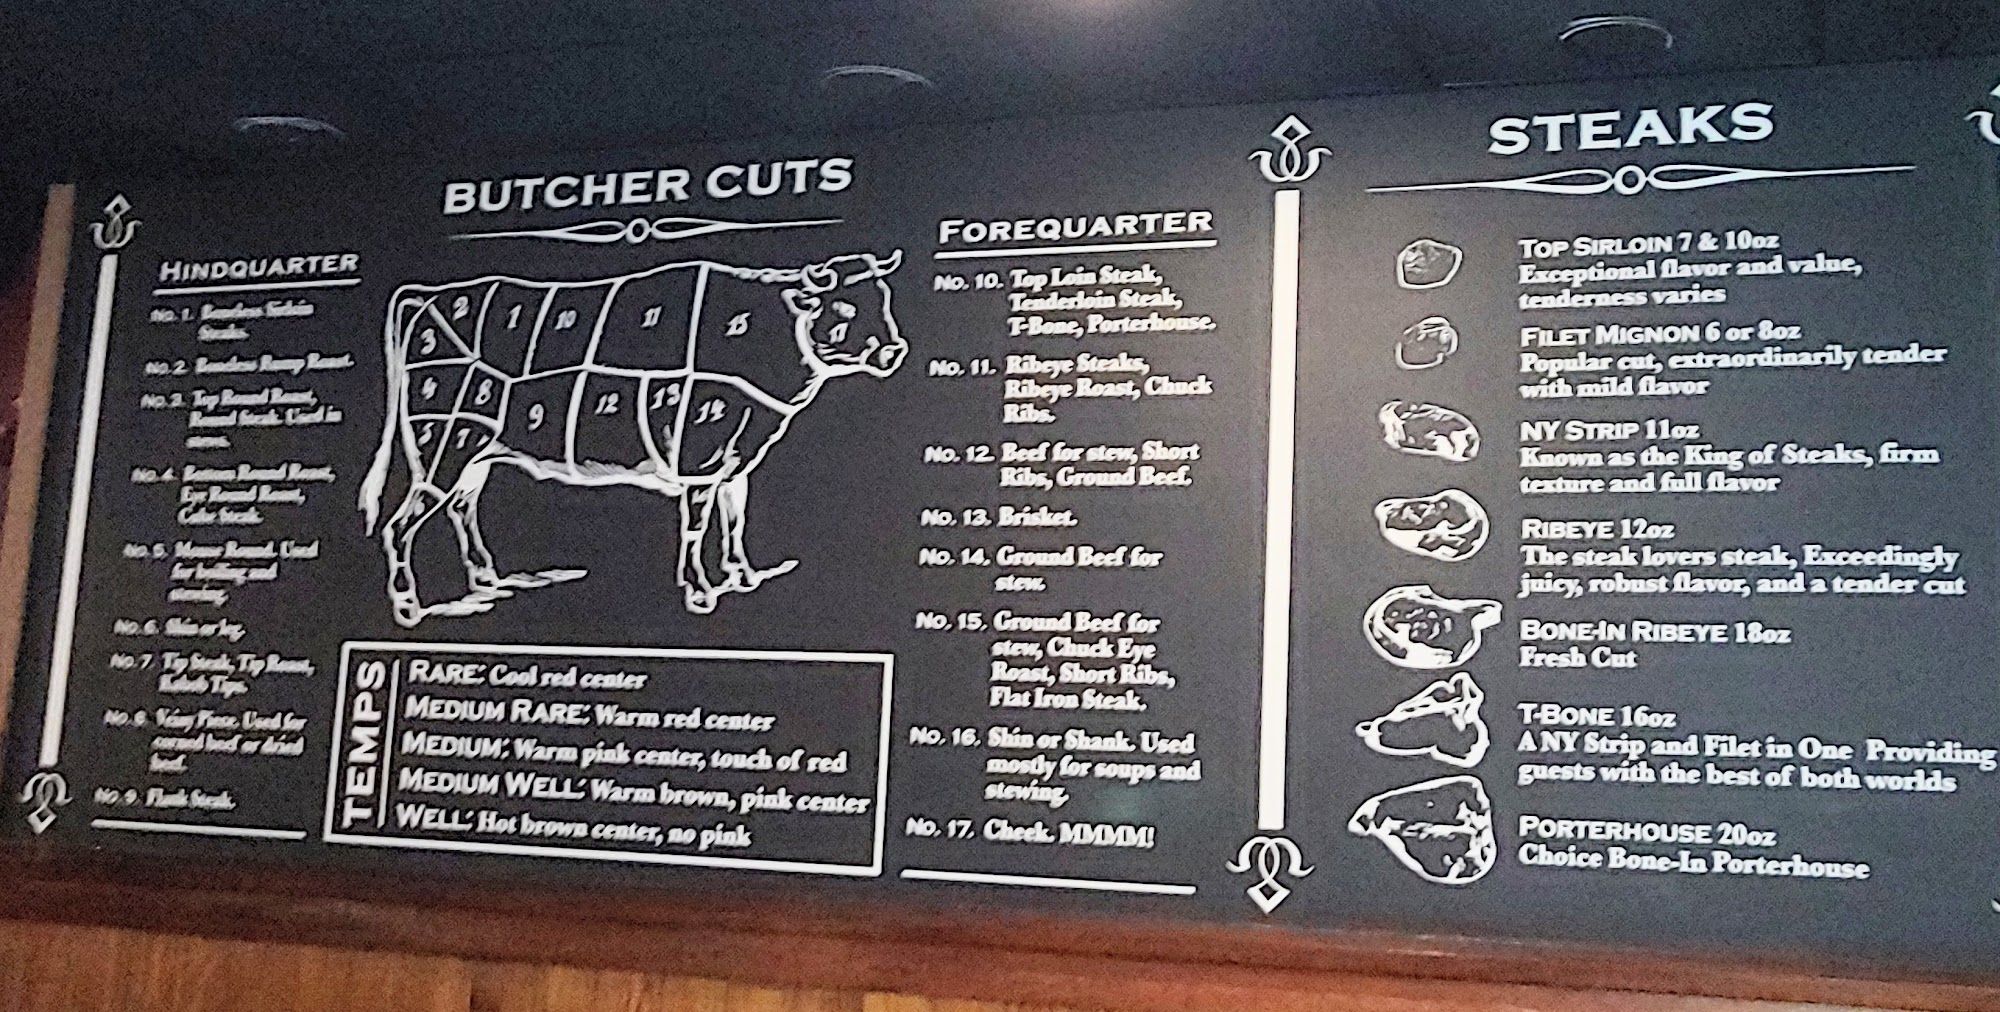 BUTCHER CUTS
HINDQUARTER
No. 1. Boneless Sirloin
Steaks.
No. 2. Boneless Rump Roast.
No. 3. Top Round Roast,
Round Steak. Used in
stews.
No. 4. Bottom Round Roast,
Eye Round Roast,
Cube Steak.
No. 5. Mouse Round. Used
for boiling and
stewing.
No. 6. Shin or leg.
No. 7. Tip Steak, Tip Roast,
Kabob Tips.
No. 8. Veiny Piece. Used for
corned beef or dried
beef.
No. 9. Flank Steak.
2 1 10 11 15 17
3
4 8 9 12 13 14
5 7
6
TEMPS
RARE: Cool red center
MEDIUM RARE: Warm red center
MEDIUM: Warm pink center, touch of red
MEDIUM WELL: Warm brown, pink center
WELL: Hot brown center, no pink
FOREQUARTER
No. 10. Top Loin Steak,
Tenderloin Steak,
T-Bone, Porterhouse.
No. 11. Ribeye Steaks,
Ribeye Roast, Chuck
Ribs.
No. 12. Beef for stew, Short
Ribs, Ground Beef.
No. 13. Brisket.
No. 14. Ground Beef for
stew.
No. 15. Ground Beef for
stew, Chuck Eye
Roast, Short Ribs,
Flat Iron Steak.
No. 16. Shin or Shank. Used
mostly for soups and
stewing.
No. 17. Cheek. MMMM!
STEAKS
TOP SIRLOIN 7 & 10oz
Exceptional flavor and value,
tenderness varies
FILET MIGNON 6 or 8oz
Popular cut, extraordinarily tender
with mild flavor
NY STRIP 11oz
Known as the King of Steaks, firm
texture and full flavor
RIBEYE 12oz
The steak lovers steak, Exceedingly
juicy, robust flavor, and a tender cut
BONE-IN RIBEYE 18oz
Fresh Cut
T-BONE 16oz
A NY Strip and Filet in One Providing
guests with the best of both worlds
PORTERHOUSE 20oz
Choice Bone-In Porterhouse